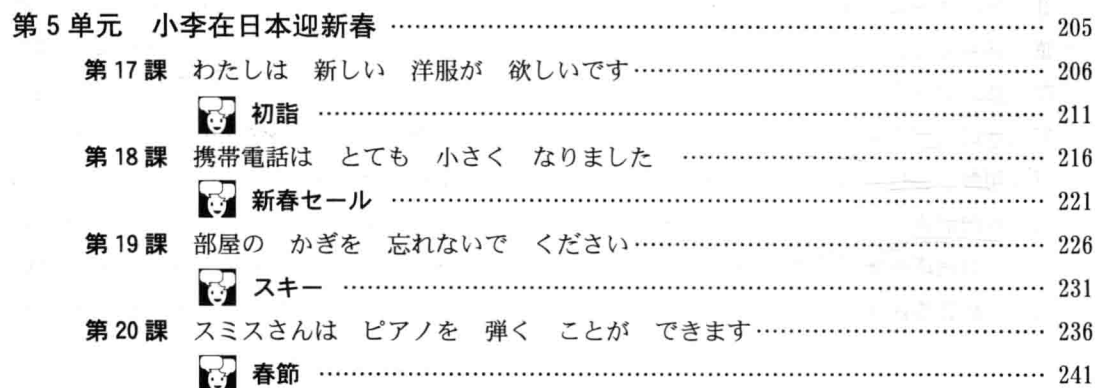 第5单元 小李在日本迎新春 …… 205
第17課 わたしは 新しい 洋服が 欲しいです …… 206
初詣 …… 211
第18課 携帯電話は とても 小さく なりました …… 216
新春セール …… 221
第19課 部屋の かぎを 忘れないで ください …… 226
スキー …… 231
第20課 スミスさんは ピアノを 弾く ことが できます …… 236
春節 …… 241